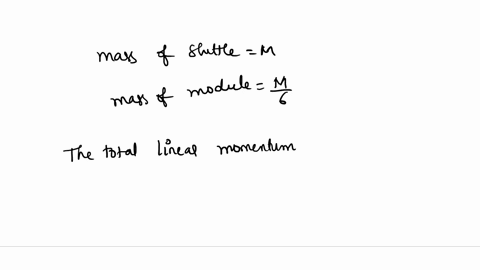 mass of shuttle = M
mass of module = M/6
The total lineal momentum